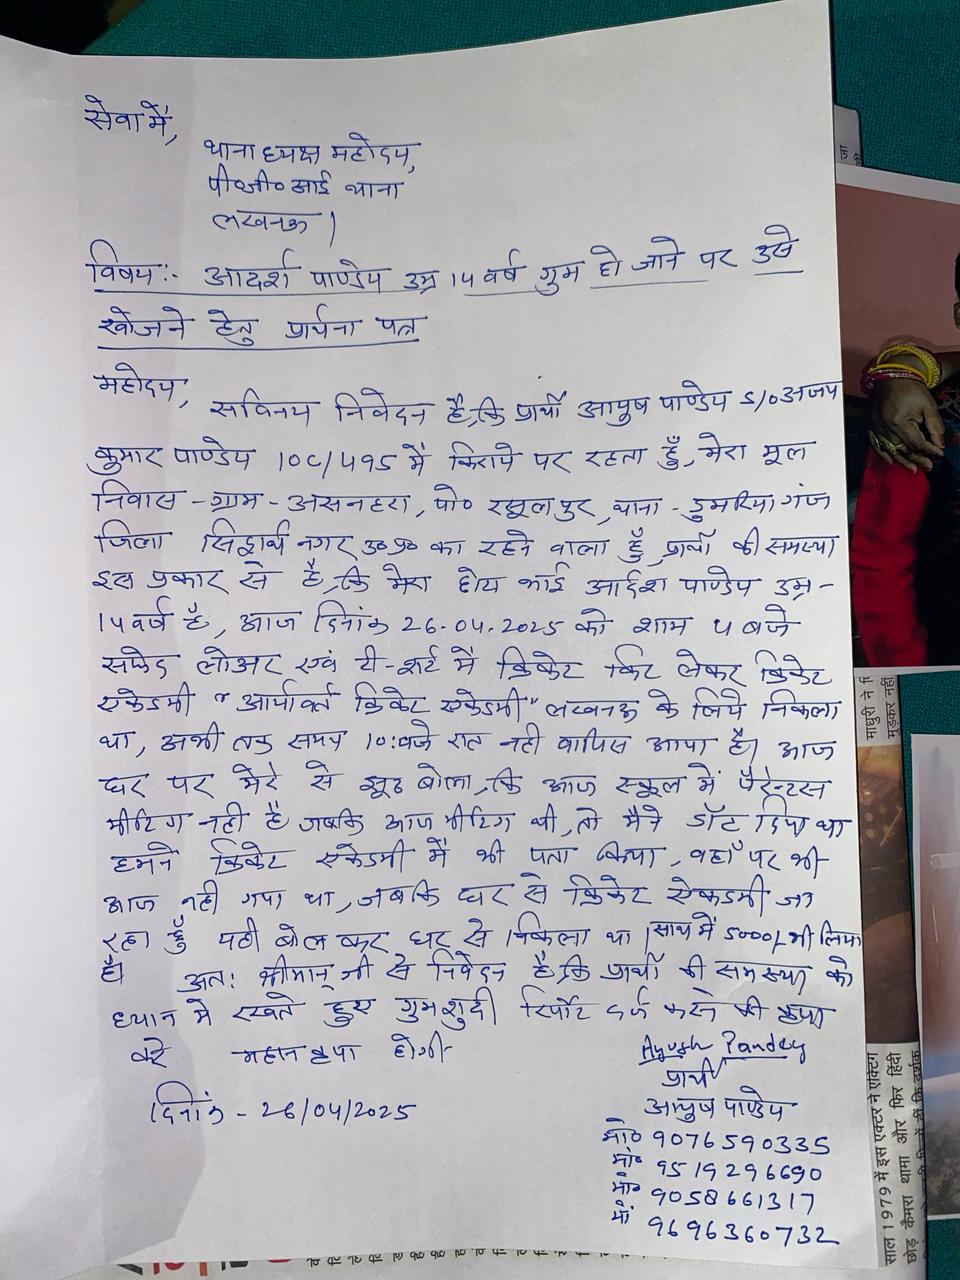 सेवा में,
थाना ध्यक्ष महोदय,
पी०जी० आई थाना
लखनऊ।
विषय:- आदर्श पाण्डेय उम्र 14 वर्ष गुम हो जाने पर उसे
खोजने हेतु प्रार्थना पत्र
महोदय,
सविनय निवेदन है, कि प्रार्थी आयुष पाण्डेय S/o अजय
कुमार पाण्डेय 10C/495 में किराये पर रहता हूँ, मेरा मूल
निवास - ग्राम - असनहरा, पो० रसूलपुर, थाना - डुमरिया गंज
जिला सिद्धार्थ नगर उ०प्र० का रहने वाला हूँ, प्रार्थी की समस्या
इस प्रकार से है, कि मेरा छोटा भाई आर्दश पाण्डेय उम्र -
14 वर्ष है, आज दिनांक 26.04.2025 को शाम 4 बजे
सफेद लोअर एवं टी-शर्ट में क्रिकेट किट लेकर क्रिकेट
एकेडमी "आर्यावर्त क्रिकेट एकेडमी" लखनऊ के लिये निकला
था, अभी तक समय 10:बजे रात नही वापिस आया है। आज
घर पर मेरे से झूठ बोला, कि आज स्कूल में पैरेन्टस
मीटिंग नही है जबकि आज मीटिंग थी, तो मैंने डॉट दिया था
हमने क्रिकेट एकेडमी में भी पता किया, वहाँ पर भी
आज नही गया था, जबकि घर से क्रिकेट ऐकेडमी जा
रहा हूँ यही बोल कर घर से निकला था। साथ में 5000/- भी लिया
है। अत: श्रीमान् जी से निवेदन है, कि प्रार्थी की समस्या को
ध्यान में रखते हुए गुमशुदी रिर्पोट दर्ज करने की कृपा
करे महान कृपा होगी
Ayush Pandey
प्रार्थी
आयुष पाण्डेय
दिनांक - 26/04/2025
मो० 9076590335
मो० 9519296690
मो० 9058661317
मो० 9696360732
माधुरी ने
मुड़कर नहीं
साल 1979 में इस एक्टर ने एक्टिंग
छोड़ कैमरा थामा और फिर हिंदी